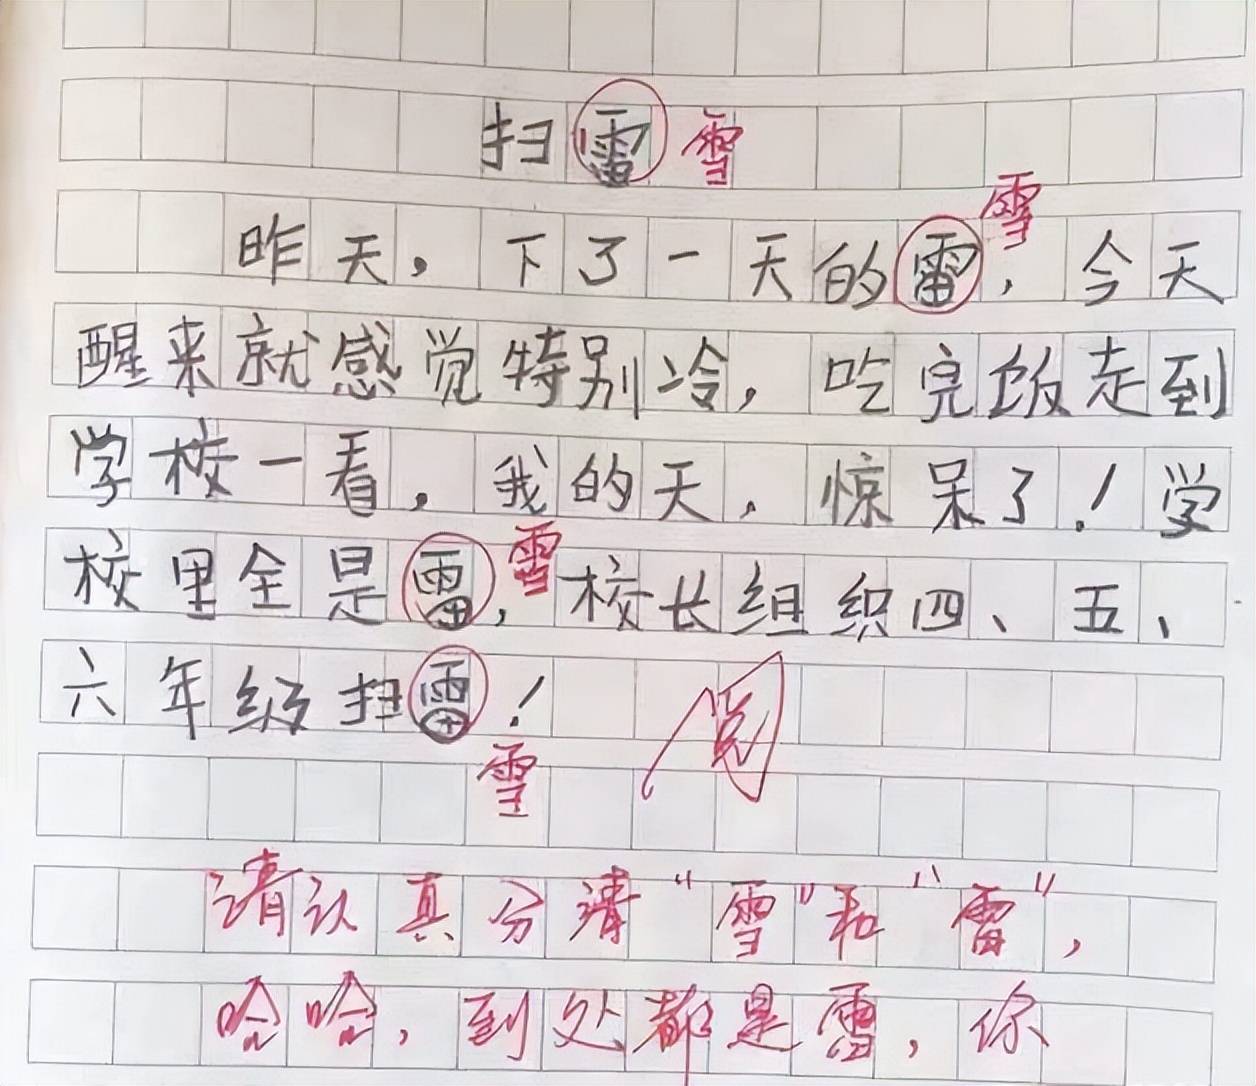 扫雷 雪
雪
昨天，下了一天的雷，今天
醒来就感觉特别冷，吃完饭走到
学校一看，我的天，惊呆了！学
校里全是雷，雪校长组织四、五、
六年级扫雷！ 阅
雪
请认真分清“雪”和“雷”，
哈哈，到处都是雷，你